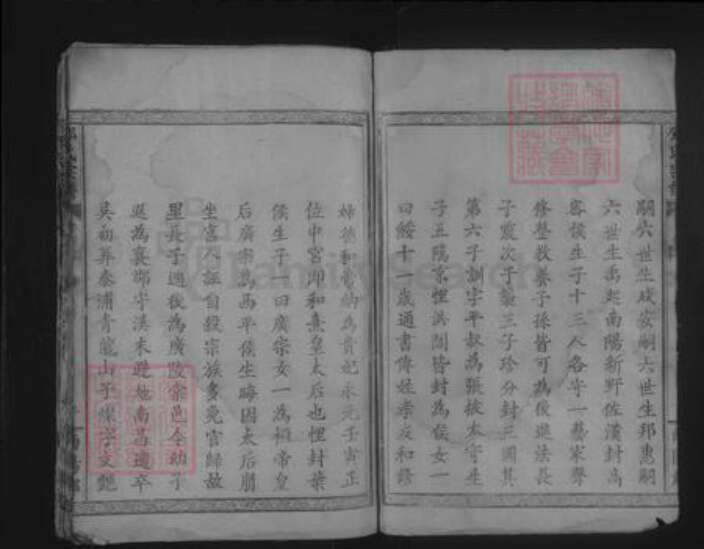 嗣六世生成安嗣六世生邦惠嗣
六世生禹起南陽新野佐漢封高
密侯生子十三人各守一藝家聲
修整教養子孫皆可為後進法長
子震次子襲三子珍分封三國其
第六子訓字平叔為張掖太守生
子五隲京悝弘閶皆封為侯女一
曰綏十一歲通書傳姓孝友和諺
婦德和帝納為貴妃永元壬寅正
位中宮即和熹皇太后也悝封葉
侯生子一曰廣宗女一為桓帝皇
后廣宗為西平侯生晦因太后朋
坐宮人誣自殺宗族多免官歸故
里長子遇後為廣陵棠邑令幼子
遲為襄鄉守漢末避地南昌遷卒
吳初葬秦浦青龍山子燦字文艷